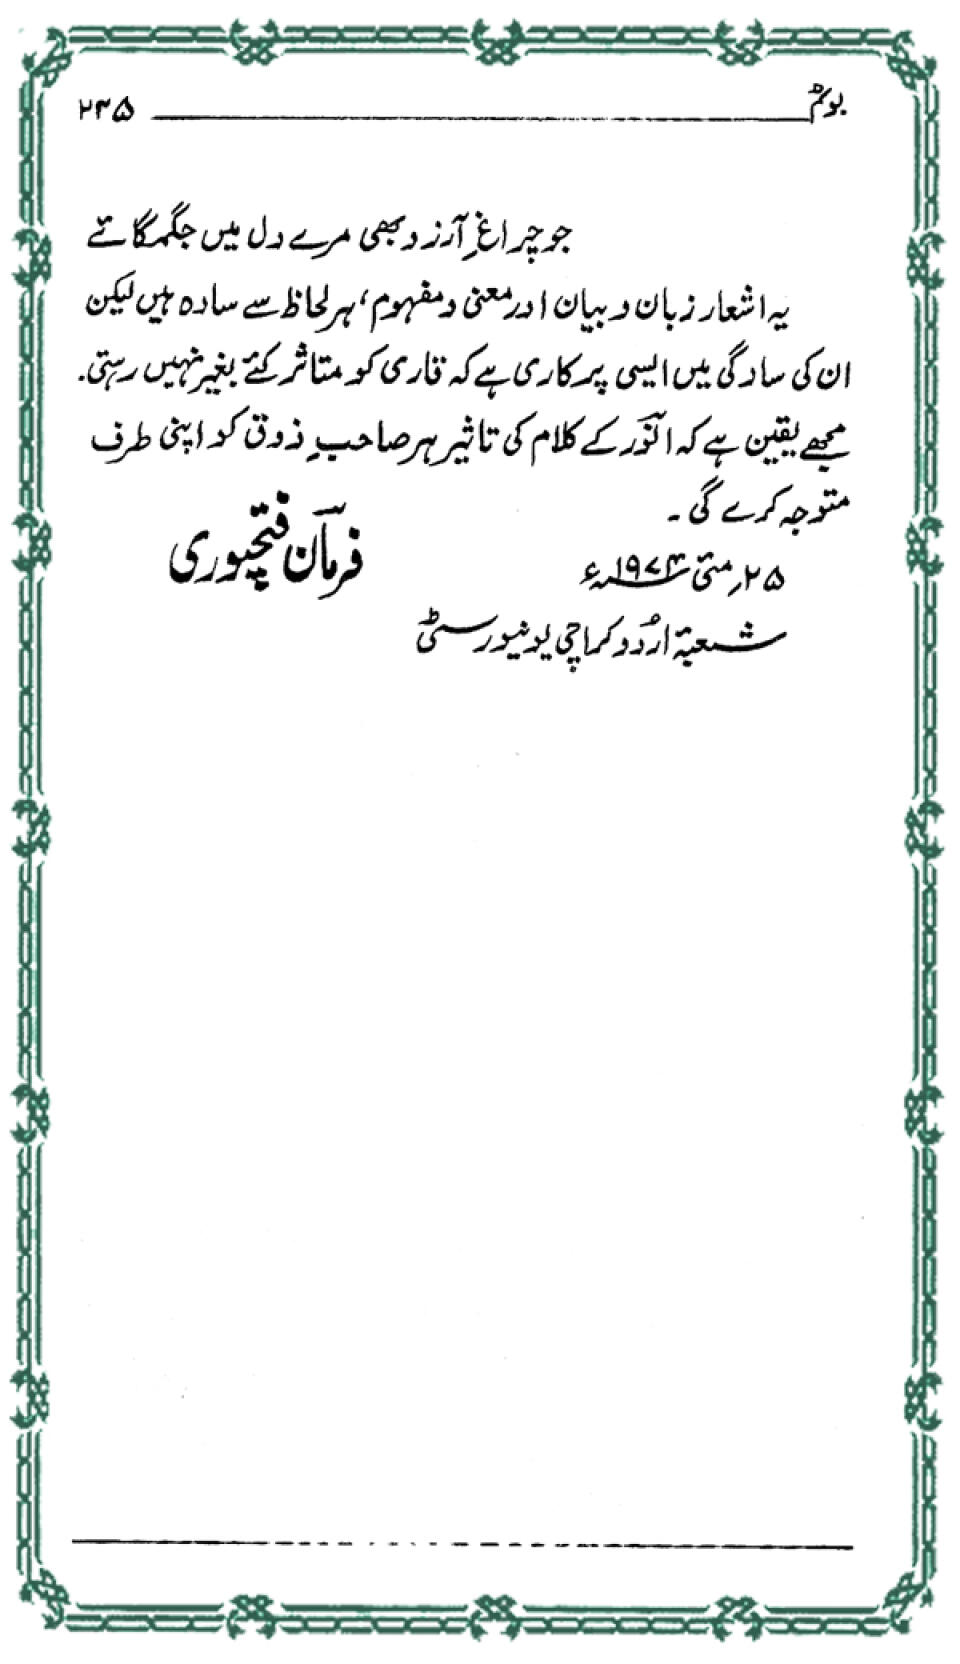 بوئے گُم ۲۳۵
جو چراغِ آرزو بھی مرے دل میں جگمگائے
یہ اشعار زبان و بیان اور معنی و مفہوم، ہر لحاظ سے سادہ ہیں لیکن
ان کی سادگی میں ایسی پرکاری ہے کہ قاری کو متاثر کئے بغیر نہیں رہتی.
مجھے یقین ہے کہ انوؔر کے کلام کی تاثیر ہر صاحبِ ذوق کو اپنی طرف
متوجہ کرے گی ۔
فرمانؔ فتحپوری
۲۵؍ مئی ۱۹۷۴ء
شعبۂ اُردو کراچی یونیورسٹی